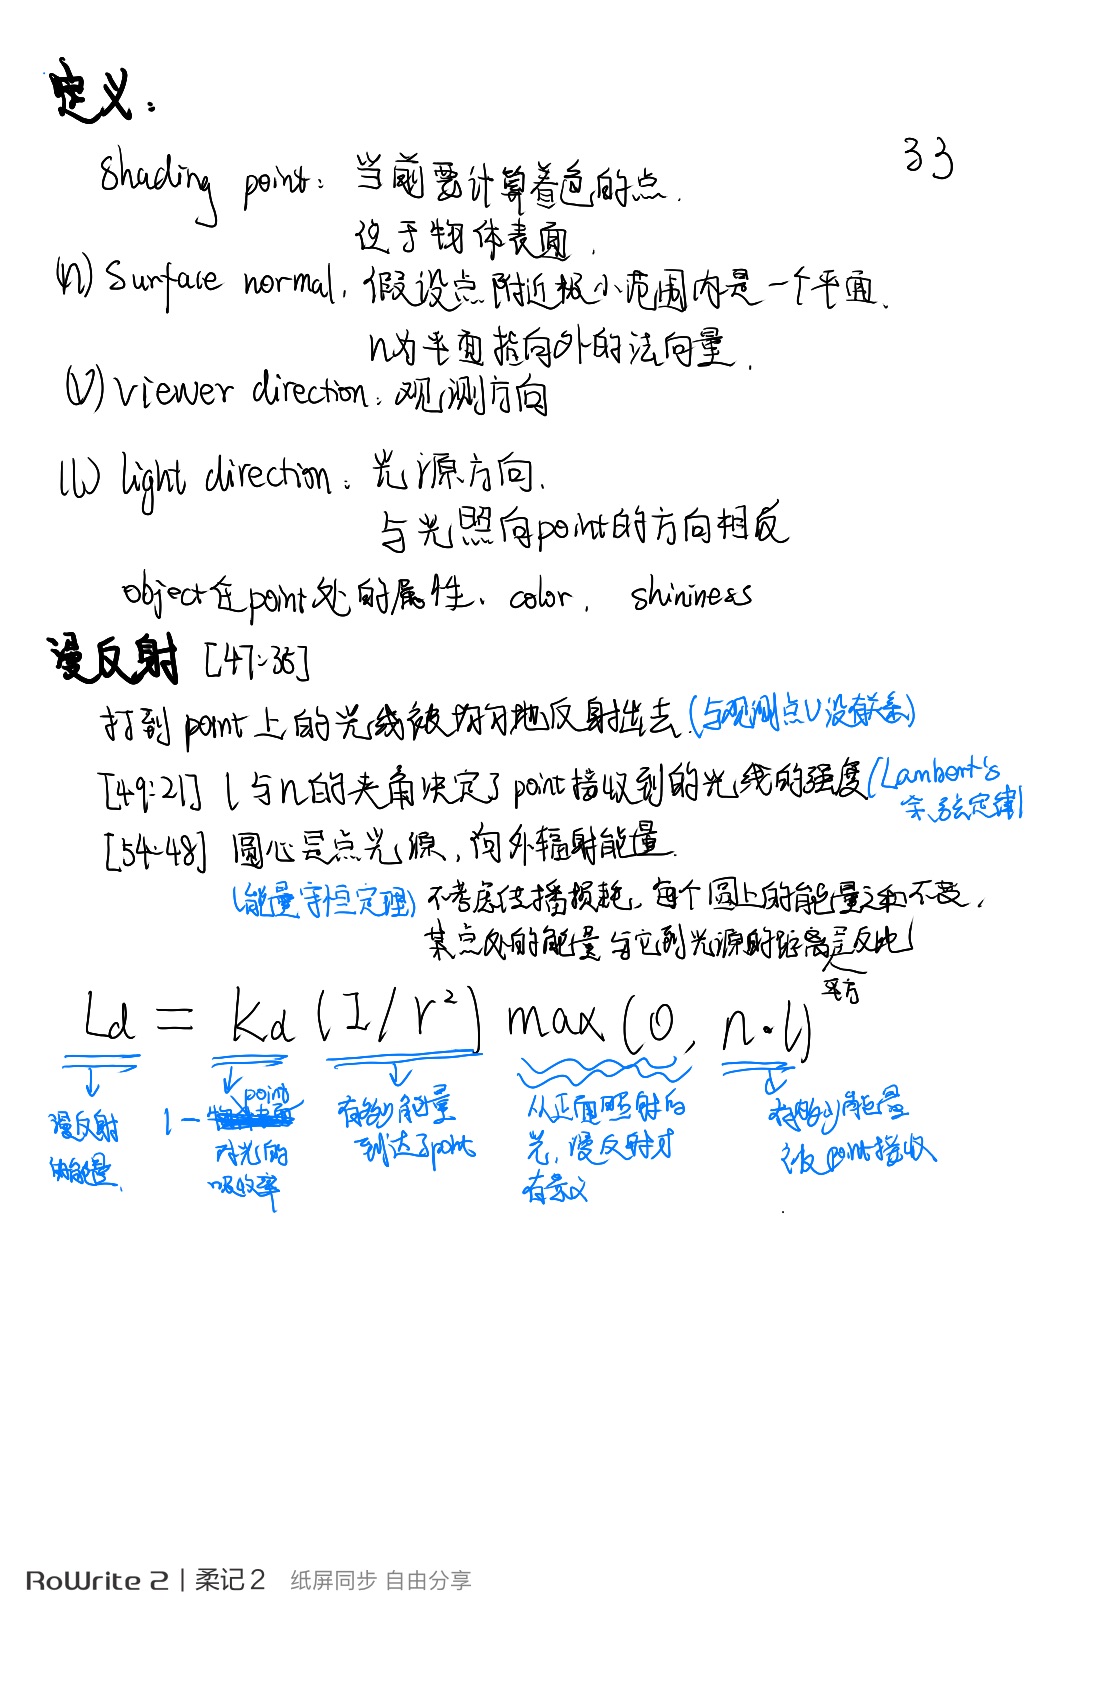 定义：
33
Shading point：当前要计算着色的点．
位于物体表面．
(n) Surface normal．假设点附近极小范围内是一个平面．
n为平面指向外的法向量．
(v) viewer direction：观测方向
(l) light direction：光源方向．
与光照向point的方向相反
object在point处的属性、color．shininess
漫反射 [47:35]
打到point上的光线被均匀地反射出去 (与观测点v没有关系)
[49:21] l与n的夹角决定了point接收到的光线的强度 (Lambert's
余弦定律)
[54:48] 圆心是点光源，向外辐射能量．
(能量守恒定理) 不考虑传播损耗，每个圆上的能量之和不变．
某点处的能量与它到光源的距离平方是反比
Ld = Kd (I/r²) max(0, n·l)
漫反射
的能量．
1-point
对光的
吸收率
有多少能量
到达了point
从正面照射的
光，漫反射才
有意义
有多少能量
被point接收
RoWrite 2 | 柔记2 纸屏同步 自由分享